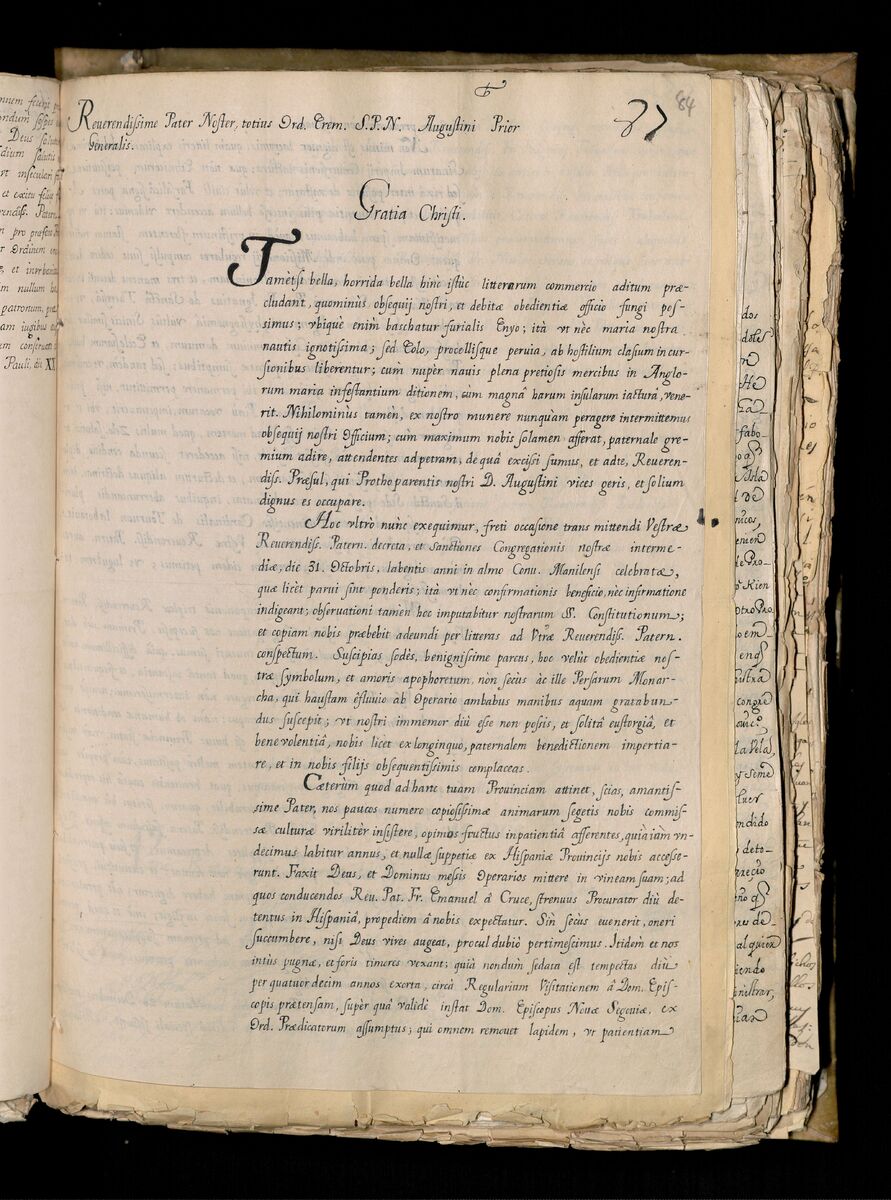 87 84
Reuerendissime Pater Noster, totius Ord. Erem. S.P.N. Augustini Prior
Generalis.
Gratia Christi.
Tamètsi bella, horrida bella hinc istùc litterarum commercio aditum præ-
cludant, quominùs obsequij nostri, et debitæ obedientiæ officio fungi pos-
simus; vbiquè enim baschatur furialis Enyo; ità vt nèc maria nostra
nautis ignotissima; sed Eolo, procellisque peruia, ab hostilium clasium incur-
sionibus liberentur; cùm nupèr nauis plena pretiosis mercibus in Anglo-
rum maria infestantium ditionem, cùm magnâ harum insularum iacturâ, vene-
rit. Nihilominùs tamèn, ex nostro munere nunquàm peragere intermittemus
obsequij nostri Officium; cùm maximum nobis solamen afferat, paternale gre-
mium adire, attendentes ad petram, de quâ excissi sumus, et ad te, Reueren-
diss. Præsul, qui Prothoparentis nostri D. Augustini vices geris, et solium
dignus es occupare.
Hoc vltrò nùnc exequimur, freti occasione transmittendi Vestræ
Reuerendiss. Patern. decreta, et Sanctiones Congregationis nostræ interme-
diæ, die 31. Octobris, labentis anni in almo Conu. Manilensi celebratæ,
quæ licèt parui sint ponderis; ità vt nèc confirmationis beneficio, nèc infirmatione
indigeant; obseruationi tamèn hoc imputabitur nostrarum SS. Constitutionum;
et copiam nobis præbebit adeundi per litteras ad Vtræ Reuerendiss. Patern.
conspectum. Suscipias sodès, benignissime parcus, hoc velùt obedientiæ nos-
træ symbolum, et amoris apophoretum, nòn secùs àc ille Persarum Monar-
cha, qui haustam è fluuio ab Operario ambabus manibus aquam gratabun-
dus suscepit; vt nostri immemor diù esse non possis, et solitâ eustorgiâ, et
beneuolentiâ, nobis licet ex longinquo, paternalem benedictionem impertia-
re, et in nobis filijs obsequentissimis complaceas.
Cæterùm quod ad hanc tuam Prouinciam attinet, scias, amantis-
sime Pater, nos paucos numero copiosissimæ animarum segetis nobis commis-
sæ culturæ virilitèr insistere, opimos fructus in patientiâ afferentes, quià iàm vn-
decimus labitur annus, et nullæ suppetiæ ex Hispaniæ Prouincijs nobis accesse-
runt. Faxit Deus, et Dominus messis Operarios mittere in vineam suam; ad
quos conducendos Reu. Pat. Fr. Emanuel â Cruce, strenuus Procurator diù de-
tentus in Hispaniâ, propediem â nobis expectatur. Sin secùs euenerit, oneri
succumbere, nisi Deus vires augeat, procul dubiò pertimescimus. Itidem et nos
intùs pugnæ, et foris timores vexant; quià nondùm sedata est tempestas diù
per quatuordecim annos exorta, circà Regularium Visitationem â Dom. Epis-
copis prætensam, supèr quâ validè instat Dom. Episcopus Nouæ Segouiæ, ex
Ord. Prædicatorum assumptus; qui omnem remouet lapidem, vt patientiam